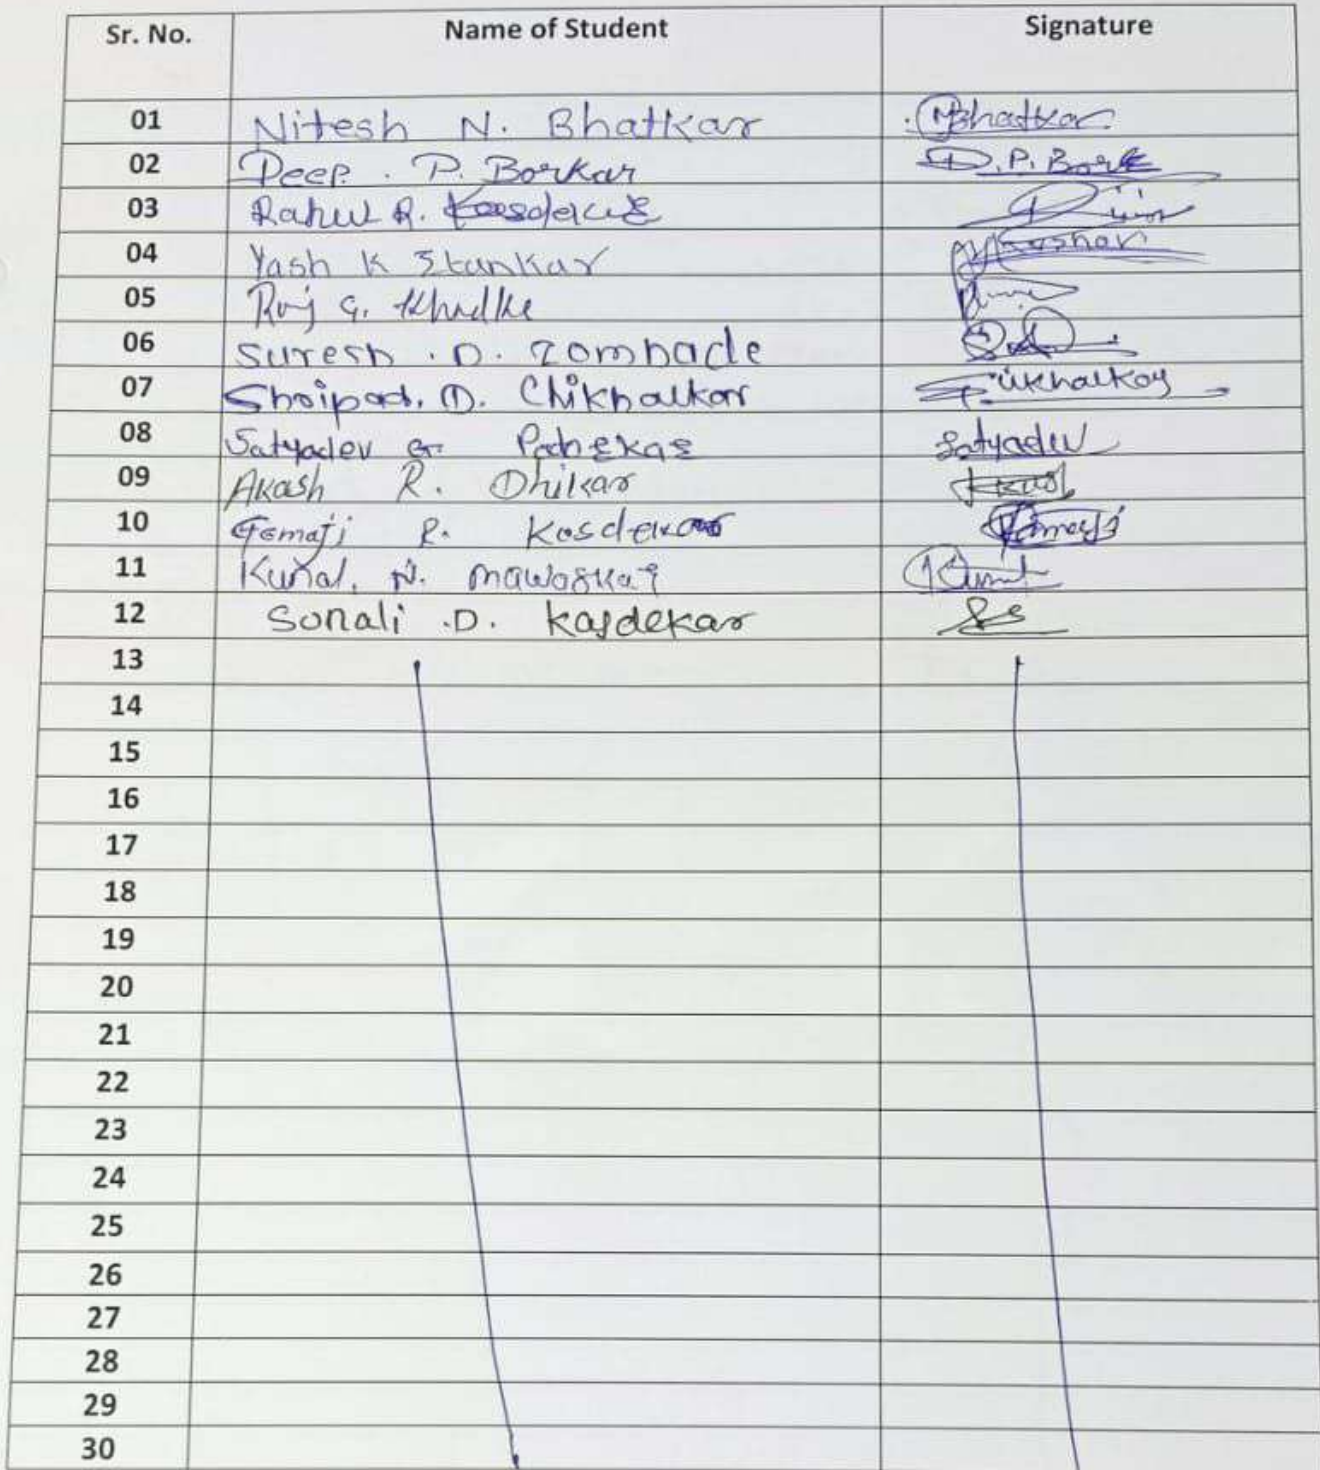 Sr. No. Name of Student Signature
01 Nitesh N. Bhatkar Bhatkar
02 Deep. P. Borkar D.P. Bork
03 Rahul R.
04 Yash K
05 Raj G.
06 Suresh . D. Zombade
07 Shripad. D. Chikhalkar
08 Satyadev Satyadev
09 Akash R. Dhikar
10 Gemaji R. Kasdekar
11 Kunal. N. Mawaskar
12 Sonali .D. Kasdekar
13
14
15
16
17
18
19
20
21
22
23
24
25
26
27
28
29
30